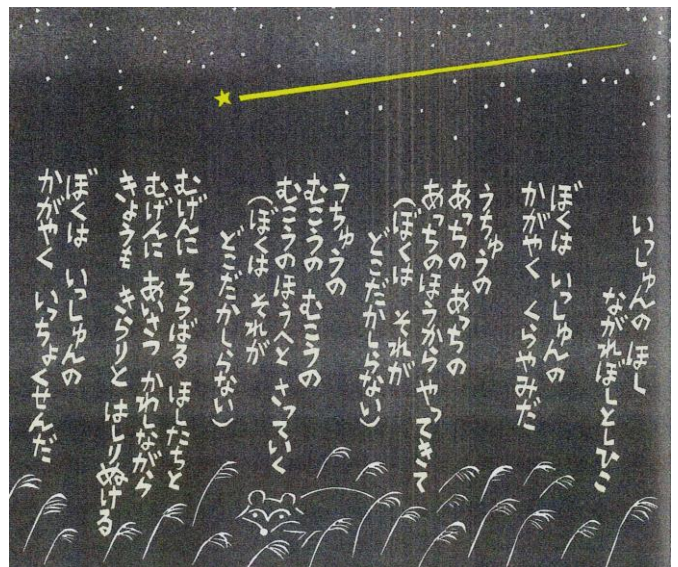 いっしゅんのほし
ながれぼしとしひこ
ぼくは いっしゅんの
かがやく くらやみだ
うちゅうの
あっちの あっちの
あっちのほうから やってきて
(ぼくは それが
どこだかしらない)
うちゅうの
むこうの むこうの
むこうのほうへと さっていく
(ぼくは それが
どこだかしらない)
むげんに ちらばる ほしたちと
むげんに あいさつ かわしながら
きょうも きらりと はしりぬける
ぼくは いっしゅんの
かがやく いっちょくせんだ